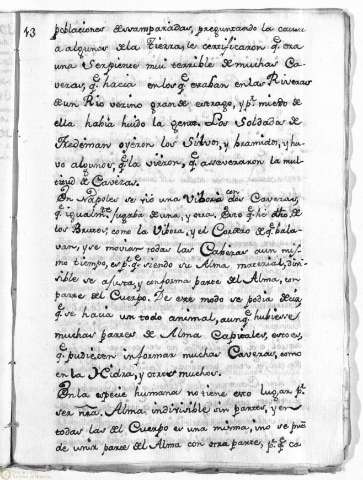 13
poblaciones desamparadas, preguntando la causa
a algunos de la Tierra, le certificaron q.e era
una Serpiente mui terrible de muchas Ca-
vezas, q.e hacia en los q.e estaban en las Riveras
de un Rio vezino grande estrago, y p.r miedo de
ella habia huido la gente. Los Soldados de
Fredeman oyeron los Silvos, y bramidos, y hu-
vo algunos, q.e la vieron, q.e aseveraron la mul-
titud de Cavezas.
En Napoles se vió una Vibora con dos Cavezas,
q.e igualm.te jugaba de una, y otra. Esto q.e hé dho de
los Bueies, como la Vibora, y el Cordero de q.e bala-
van, y se movian todas las Cabezas a un mis-
mo tiempo, es p.r q.e siendo su Alma material, divi-
sible se ajusta, y conforma parte de Alma, con
parte del Cuerpo. De este modo se podia decir
q.e se hacia un todo animal, aunq.e hubiesse
muchas partes de Alma Capitales, esto es,
q.e pudiesen informar muchas Cavezas, como
en la Hidra, y otros muchos.
En la especie humana no tiene esto lugar p.r
ser nra. Alma indivisible sin partes, y en
todas las del Cuerpo es una misma, i no se pue
de unir parte del Alma con otra parte, p.r q.e ca